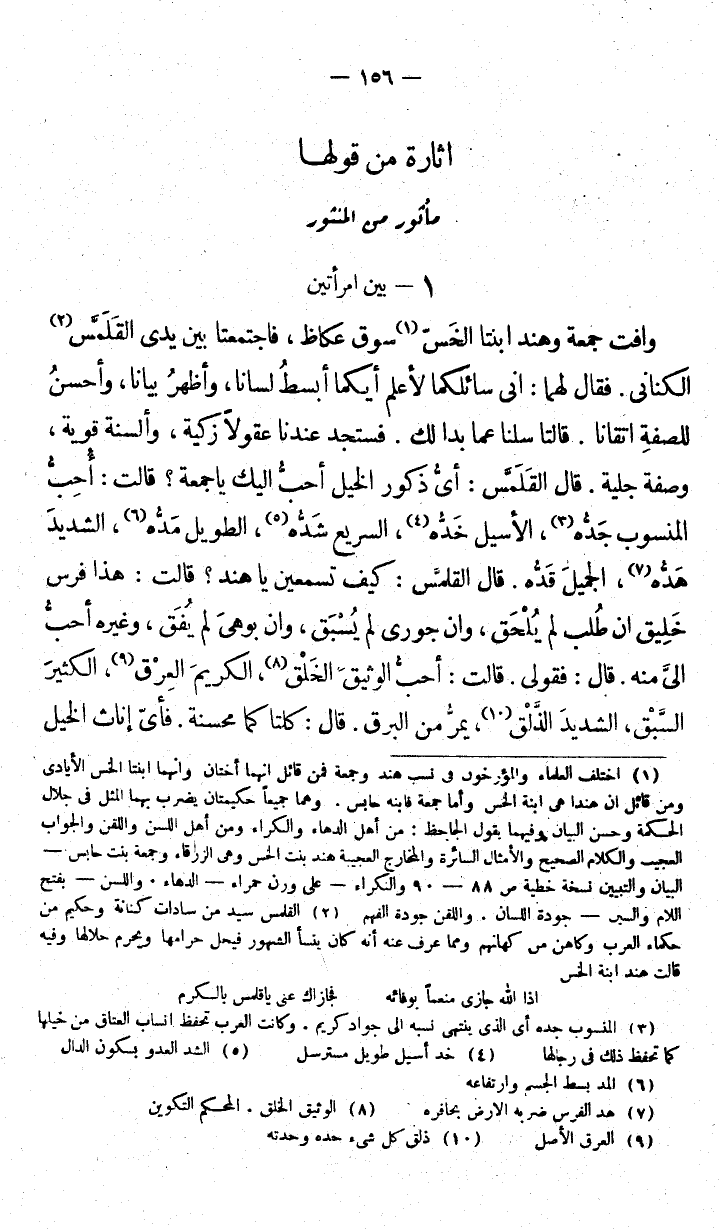 — ١٥٦ —
اثارة من قولها
مأثور من المنثور
١ — بين امرأتين
وافت جمعة وهند ابنتا الخَسّ (١) سوق عكاظ ، فاجتمعتا بين يدى القَلَمَّس (٢)
الكنانى . فقال لهما : انى سائلكما لأعلم أيكما أبسطُ لسانا ، وأظهرُ بيانا ، وأحسنُ
للصفةِ اتقانا . قالتا سلنا عما بدا لك . فستجد عندنا عقولاً زكية ، وألسنة قوية ،
وصفة جلية . قال القَلَمَّس : أىُّ ذكور الخيل أحبُّ اليك ياجمعة ؟ قالت : أُحِبُّ
المنسوب جَدُّه (٣) ، الأسيل خَدُّه (٤) ، السريع شَدُّه (٥) ، الطويل مَدُّه (٦) ، الشديدَ
هَدُّه (٧) ، الجميلَ قَدُّه . قال القلمَّس : كيف تسمعين يا هند ؟ قالت : هذا فرس
خَلِيق ان طُلب لم يُلْحَق ، وان جورى لم يُسْبَق ، وان بوهىَ لم يُفَق ، وغيره أحبُّ
الىَّ منه . قال : فقولى . قالت : أحبُّ الوثيقَ الخَلْق (٨) ، الكريمَ العِرْق (٩) ، الكثيرَ
السَّبْق ، الشديدَ الذَّلْق (١٠) ، يمرُّ من البرق . قال : كلتا كما محسنة . فأىّ إناث الخيل
(١) اختلف العلماء والمؤرخون فى نسب هند وجمعة فمن قائل انهما أختان وانهما ابنتا الخس الأيادى
ومن قائل ان هندا هى ابنة الخس وأما جمعة فابنه حابس . وهما جميعاً حكيمتان يضرب بهما المثل فى جلال
الحكمة وحسن البيان وفيهما يقول الجاحظ : من أهل الدهاء والكراء ومن أهل اللسن واللقن والجواب
العجيب والكلام الصحيح والأمثال السائرة والمخارج العجيبة هند بنت الخس وهى الزرقاء وجمعة بنت حابس —
البيان والتبيين نسخة خطية ص ٨٨ — ٩٠ والنكراء — على وزن حمراء — الدهاء . واللسن — بفتح
اللام والسير — جودة اللسان . واللقن جودة الفهم (٢) القلمس سيد من سادات كنانة وحكيم من
حكماء العرب وكاهن من كهانهم ومما عرف عنه أنه كان ينسأ الشهور فيحل حرامها ويحرم حلالها وفيه
قالت هند ابنة الخس
اذا الله جازى منعماً بوفائه فجازاك عنى ياقلمس بالكرم
(٣) المنسوب جده أى الذى ينتهى نسبه الى جواد كريم . وكانت العرب تحفظ انساب العتاق من خيلها
كما تحفظ ذلك فى رجالها (٤) خد أسيل طويل مسترسل (٥) الشد العدو بسكون الدال
(٦) المد بسط الجسم وارتفاعه
(٧) هد الفرس ضربه الارض بحافره (٨) الوثيق الخلق . المحكم التكوين
(٩) العرق الأصل (١٠) ذلق كل شىء حده وحدته